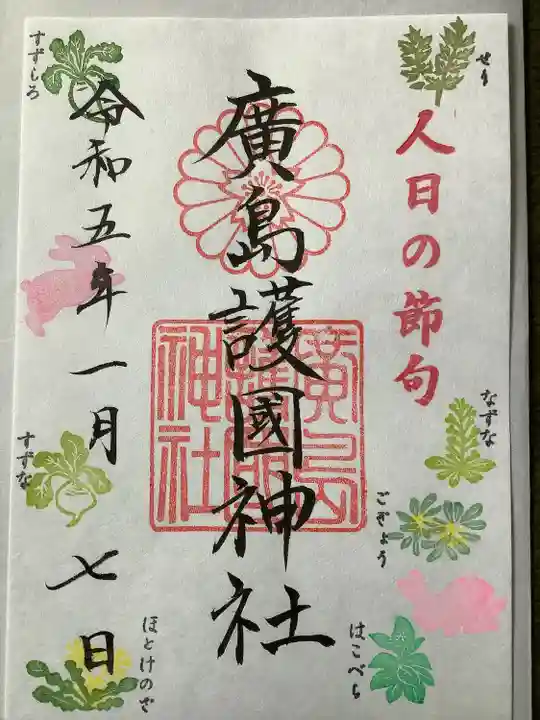 せり
人日の節句
なずな
ごぎょう
はこべら
廣島護國神社
廣島
護國
神社
すずしろ
令和五年一月七日
すずな
ほとけのざ